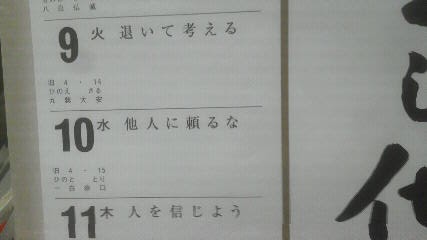 八白仏滅
9 火 退いて考える
旧 4 ・ 14
ひのえ さる
九紫大安
10 水 他人に頼るな
旧 4 ・ 15
ひのと とり
一白赤口
11 木 人を信じよう